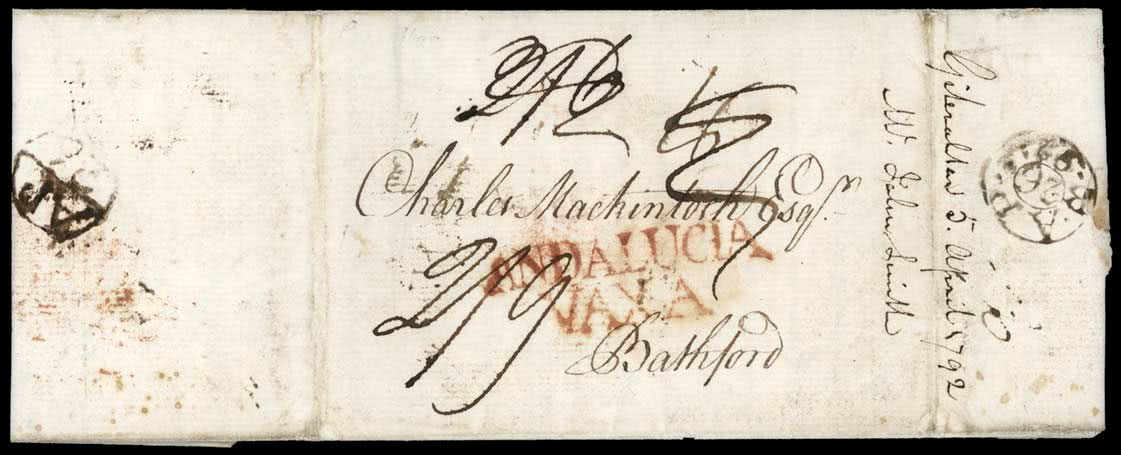 2/6
Charles Mackintosh Esqr.
ANDALUCIA
VAXA
2/9
Bathford
Giberalter 5. April 1792
Mr. John Smith